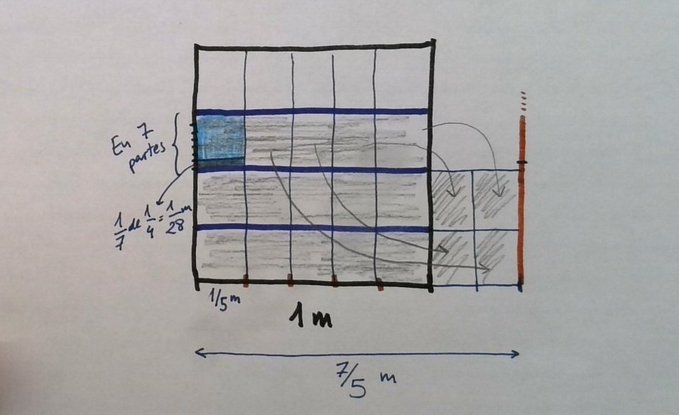 En 7
partes
1/7 de 1/4 = 1/28 m
1/5 m
1 m
7/5 m